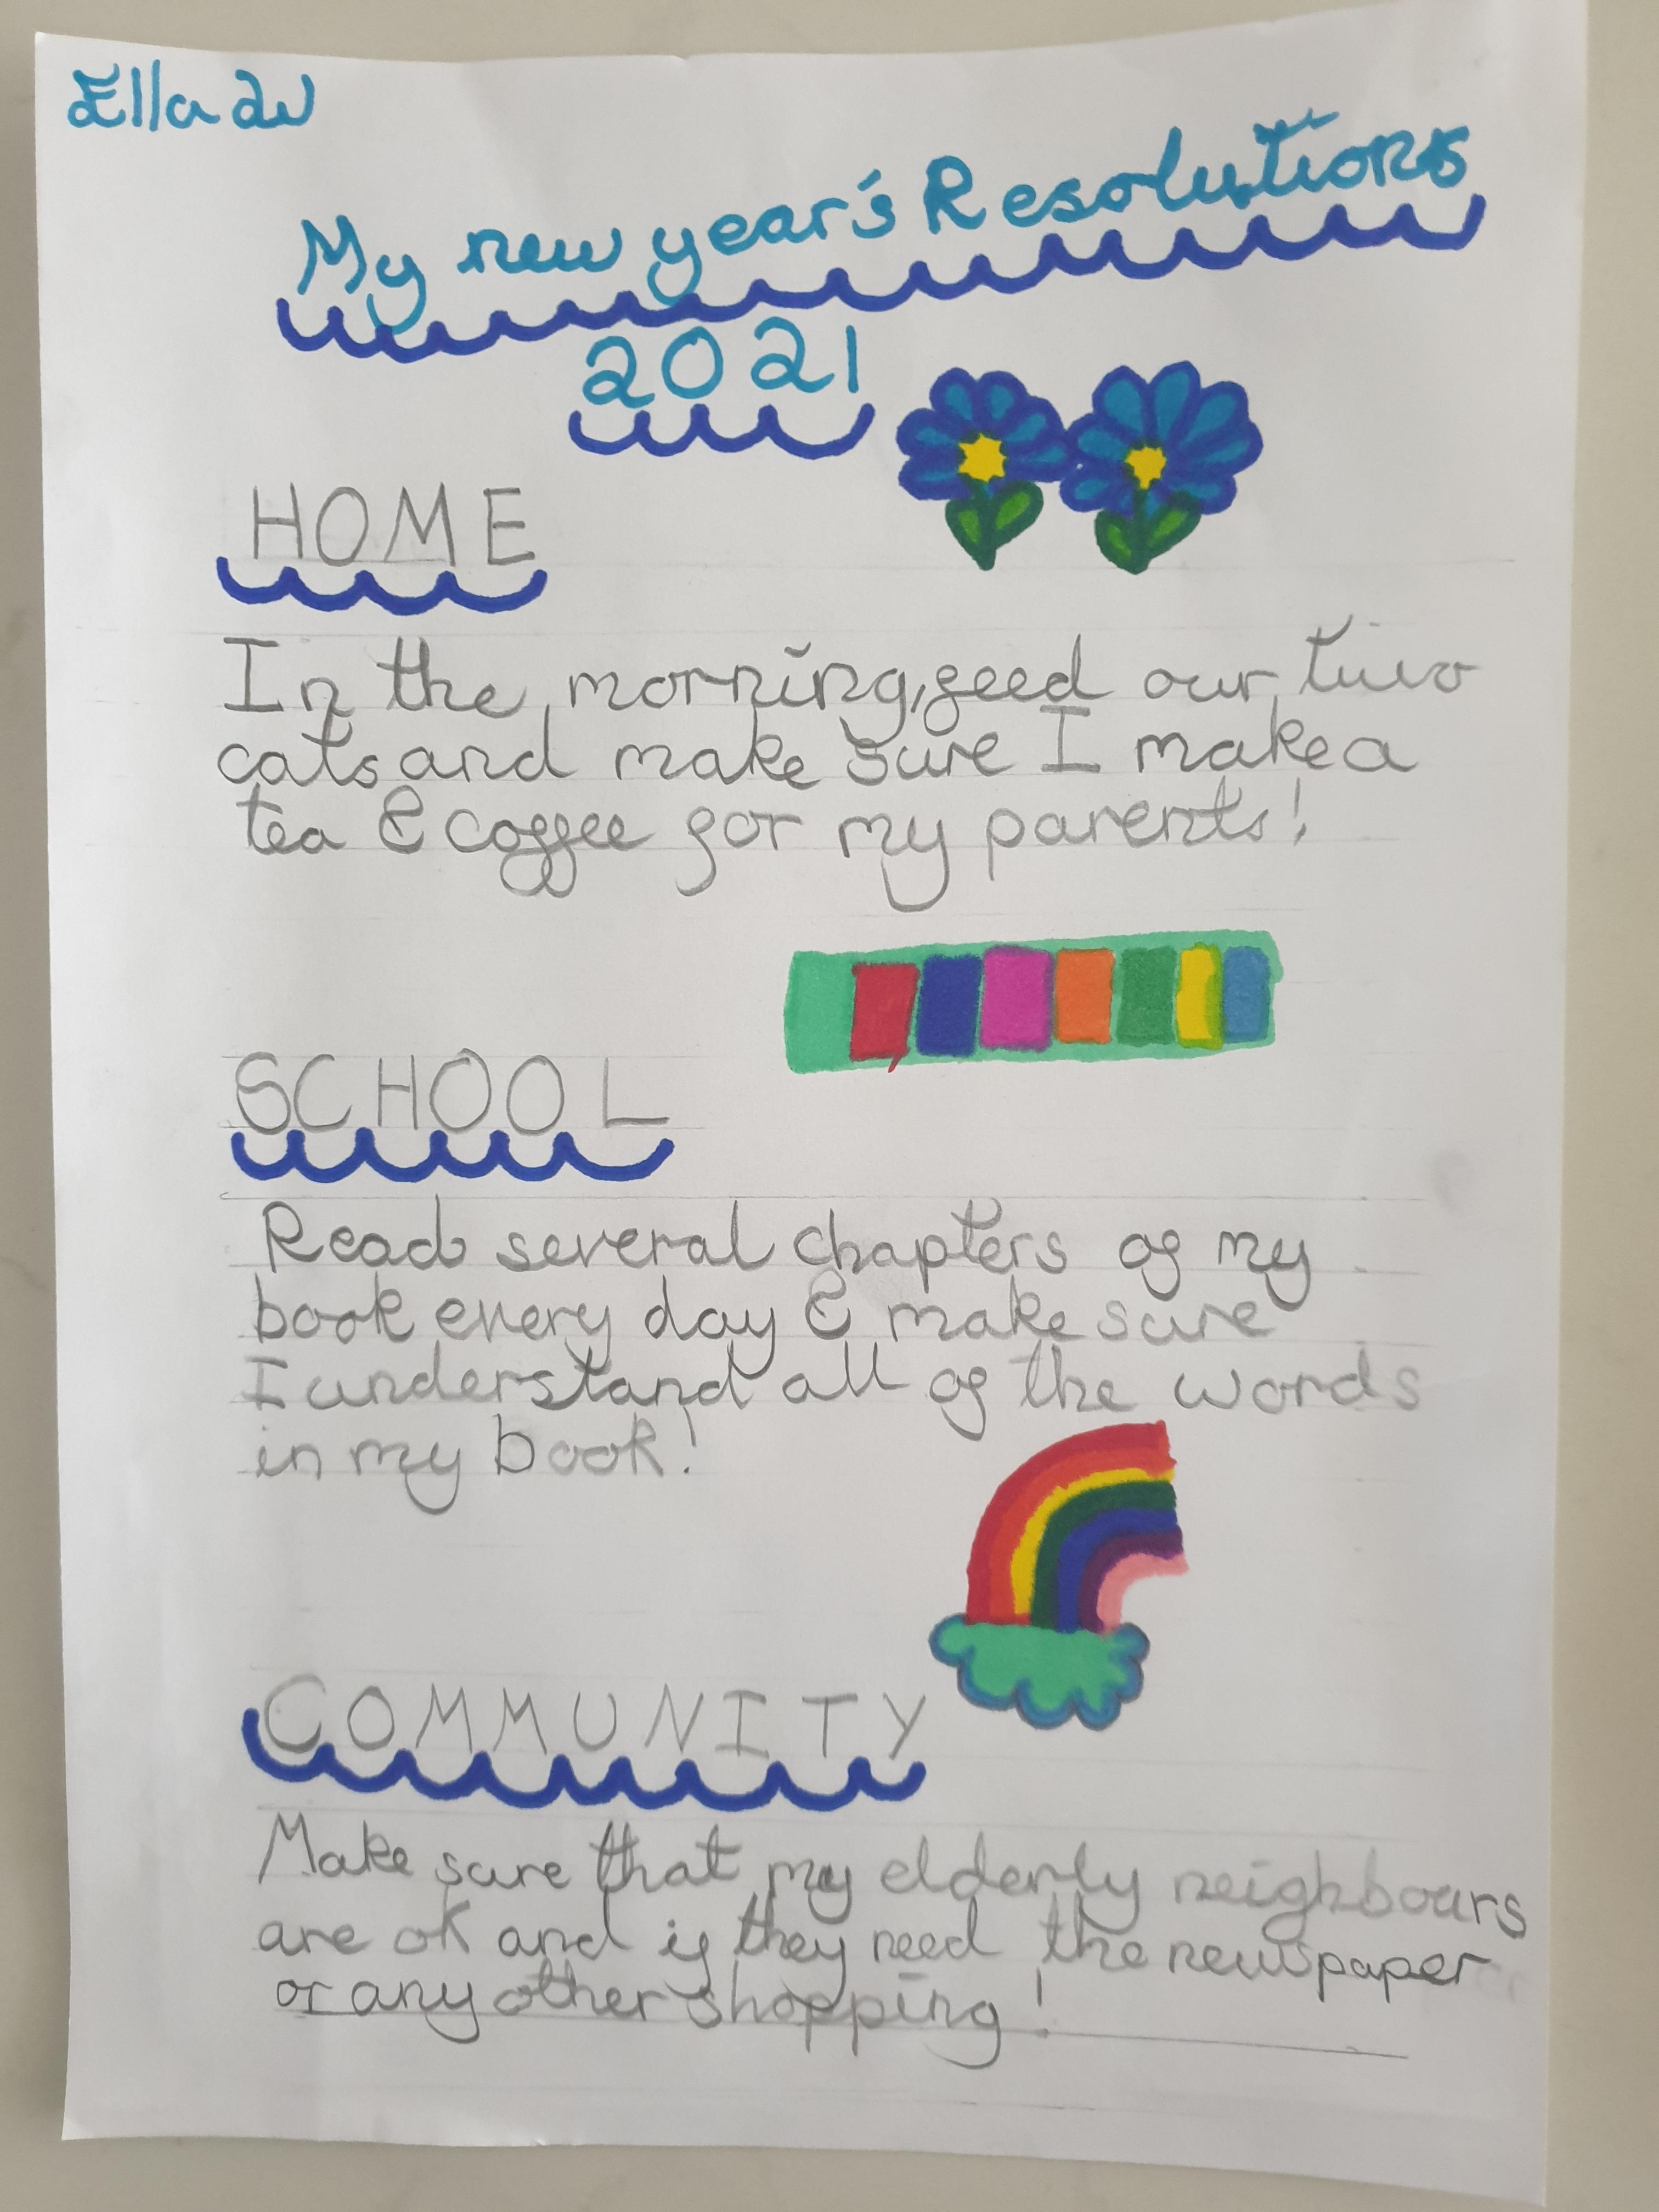 Ella 2W
My new year's Resolutions
2021
HOME
In the morning, feed our two
cats and make sure I make a
tea & coffee for my parents!
SCHOOL
Read several chapters of my
book every day & make sure
I understand all of the words
in my book!
COMMUNITY
Make sure that my elderly neighbours
are ok and if they need the newspaper
or any other shopping!